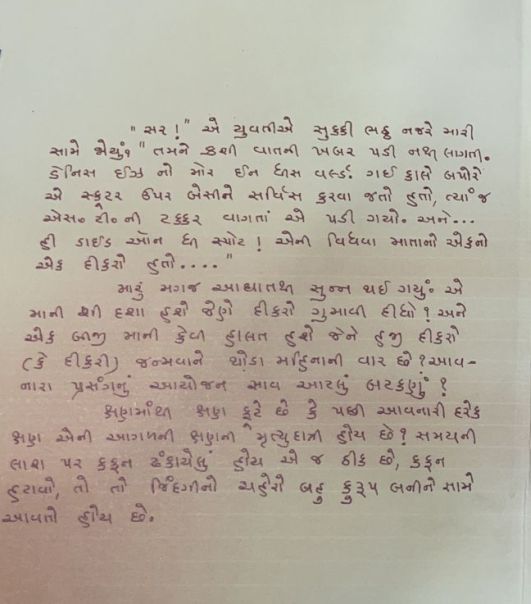 "સર !" એ યુવતીએ સુક્કી ભઠ્ઠ નજરે મારી
સામે જોયું, "તમને કશી વાતની ખબર પડી નથી લાગતી.
ડેનિસ ઈઝ નો મોર ઈન ધીસ વર્લ્ડ. ગઈ કાલે બપોરે
એ સ્કુટર ઉપર બેસીને સર્વિસ કરવા જતો હતો, ત્યાં જ
એસ. ટી. ની ટક્કર વાગતાં એ પડી ગયો. અને...
હી ડાઈડ ઑન ધી સ્પોટ ! એની વિધવા માતાનો એકનો
એક દીકરો હતો...."
મારું મગજ આઘાતથી સુન્ન થઈ ગયું. એ
માની શી દશા હશે જેણે દીકરો ગુમાવી દીધો ? અને
એક બીજી માની કેવી હાલત હશે જેને હજી દીકરો
(કે દીકરી) જન્મવાને થોડા મહિનાની વાર છે ? આવ-
નારા પ્રસંગનું આયોજન સાવ આટલું બટકણું ?
ક્ષણમાંથી ક્ષણ ફૂટે છે કે પછી આવનારી દરેક
ક્ષણ એની આગળની ક્ષણની મૃત્યુદાત્રી હોય છે ? સમયની
લાશ પર કફન ઢંકાયેલું હોય એ જ ઠીક છે, કફન
હટાવો, તો તો જિંદગીનો ચહેરો બહુ કુરૂપ બનીને સામે
આવતો હોય છે.